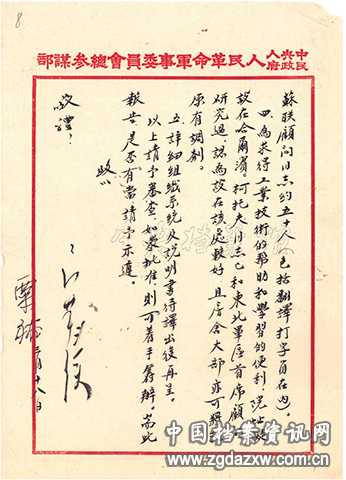 8
中央人民政府人民革命軍事委員會總參謀部
蘇聯顧問同志約五十人(包括翻譯打字員在內)。
四、為求得工業技術的幫助和學習的便利,院址建
設在哈爾濱。柯托夫同志已和東北軍區首席顧問
研究過,認為設在該處較好,且房舍大部亦可將就
原有調劑。
五、詳細組織系統及說明書待譯出後再呈。
以上請予審查,如蒙批准則可着手籌辦。耑此
報告是否有當請予示遵。
此致
敬禮!
粟裕 月十八日
中国档案资讯网
www.zgdazxw.com.cn